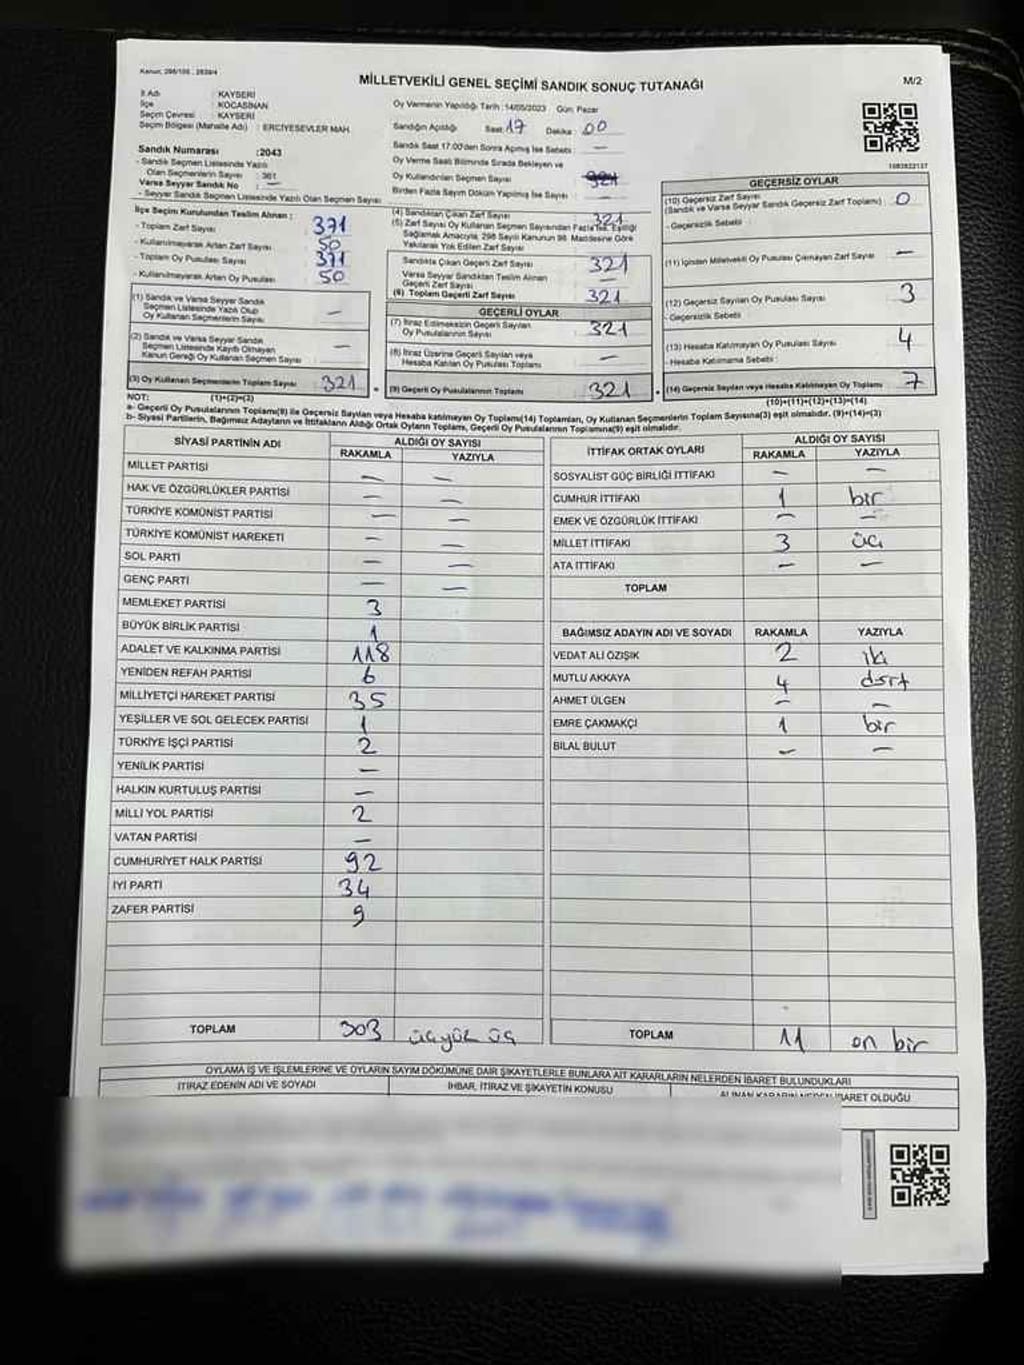 Kanun; 298/105 , 2839/4
MİLLETVEKİLİ GENEL SEÇİMİ SANDIK SONUÇ TUTANAĞI
M/2
İl Adı : KAYSERİ
İlçe : KOCASİNAN
Seçim Çevresi : KAYSERİ
Seçim Bölgesi (Mahalle Adı) : ERCİYESEVLER MAH.
Sandık Numarası :2043
- Sandık Seçmen Listesinde Yazılı
Olan Seçmenlerin Sayısı : 361
Varsa Seyyar Sandık No : —
- Seyyar Sandık Seçmen Listesinde Yazılı Olan Seçmen Sayısı
Oy Vermenin Yapıldığı Tarih :14/05/2023 Gün: Pazar
Sandığın Açıldığı Saat: 17 Dakika : 00
Sandık Saat 17.00'den Sonra Açılmış İse Sebebi : —
Oy Verme Saati Bitiminde Sırada Bekleyen ve
Oy Kullandırılan Seçmen Sayısı
Birden Fazla Sayım Döküm Yapılmış İse Sayısı —
1083822137
İlçe Seçim Kurulundan Teslim Alınan :
- Toplam Zarf Sayısı 371
- Kullanılmayarak Artan Zarf Sayısı 50
- Toplam Oy Pusulası Sayısı 371
- Kullanılmayarak Artan Oy Pusulası 50
(1) Sandık ve Varsa Seyyar Sandık
Seçmen Listesinde Yazılı Olup
Oy Kullanan Seçmenlerin Sayısı —
(2) Sandık ve Varsa Seyyar Sandık
Seçmen Listesinde Kayıtlı Olmayan
Kanun Gereği Oy Kullanan Seçmen Sayısı —
(3) Oy Kullanan Seçmenlerin Toplam Sayısı 321
(4) Sandıktan Çıkan Zarf Sayısı 321
(5) Zarf Sayısı Oy Kullanan Seçmen Sayısından Fazla İse, Eşitliği
Sağlamak Amacıyla, 298 Sayılı Kanunun 98. Maddesine Göre
Yakılarak Yok Edilen Zarf Sayısı
Sandıkta Çıkan Geçerli Zarf Sayısı 321
Varsa Seyyar Sandıktan Teslim Alınan
Geçerli Zarf Sayısı
(6) Toplam Geçerli Zarf Sayısı 321
GEÇERLİ OYLAR
(7) İtiraz Edilmeksizin Geçerli Sayılan
Oy Pusulalarının Sayısı 321
(8) İtiraz Üzerine Geçerli Sayılan veya
Hesaba Katılan Oy Pusulası Sayısı —
(9) Geçerli Oy Pusulalarının Toplamı 321
GEÇERSİZ OYLAR
(10) Geçersiz Zarf Sayısı
(Sandık ve Varsa Seyyar Sandık Geçersiz Zarf Toplamı) 0
- Geçersizlik Sebebi :
(11) İçinden Milletvekili Oy Pusulası Çıkmayan Zarf Sayısı —
(12) Geçersiz Sayılan Oy Pusulası Sayısı 3
- Geçersizlik Sebebi
(13) Hesaba Katılmayan Oy Pusulası Sayısı 4
- Hesaba Katılmama Sebebi :
(14) Geçersiz Sayılan veya Hesaba Katılmayan Oy Toplamı 7
NOT: (1)+(2)=(3) (10)+(11)+(12)+(13)=(14)
a- Geçerli Oy Pusulalarının Toplamı(9) ile Geçersiz Sayılan veya Hesaba katılmayan Oy Toplamı(14) Toplamları, Oy Kullanan Seçmenlerin Toplam Sayısına(3) eşit olmalıdır. (9)+(14)=(3)
b- Siyasi Partilerin, Bağımsız Adayların ve İttifakların Aldığı Ortak Oyların Toplamı, Geçerli Oy Pusulalarının Toplamına(9) eşit olmalıdır.
SİYASİ PARTİNİN ADI ALDIĞI OY SAYISI
RAKAMLA YAZIYLA
MİLLET PARTİSİ — —
HAK VE ÖZGÜRLÜKLER PARTİSİ — —
TÜRKİYE KOMÜNİST PARTİSİ — —
TÜRKİYE KOMÜNİST HAREKETİ — —
SOL PARTİ — —
GENÇ PARTİ — —
MEMLEKET PARTİSİ 3
BÜYÜK BİRLİK PARTİSİ 1
ADALET VE KALKINMA PARTİSİ 118
YENİDEN REFAH PARTİSİ 6
MİLLİYETÇİ HAREKET PARTİSİ 35
YEŞİLLER VE SOL GELECEK PARTİSİ 1
TÜRKİYE İŞÇİ PARTİSİ 2
YENİLİK PARTİSİ —
HALKIN KURTULUŞ PARTİSİ —
MİLLİ YOL PARTİSİ 2
VATAN PARTİSİ —
CUMHURİYET HALK PARTİSİ 92
İYİ PARTİ 34
ZAFER PARTİSİ 9
TOPLAM 303 üçyüz üç
İTTİFAK ORTAK OYLARI ALDIĞI OY SAYISI
RAKAMLA YAZIYLA
SOSYALİST GÜÇ BİRLİĞİ İTTİFAKI — —
CUMHUR İTTİFAKI 1 bir
EMEK VE ÖZGÜRLÜK İTTİFAKI — —
MİLLET İTTİFAKI 3 üç
ATA İTTİFAKI — —
TOPLAM
BAĞIMSIZ ADAYIN ADI VE SOYADI RAKAMLA YAZIYLA
VEDAT ALİ ÖZIŞIK 2 iki
MUTLU AKKAYA 4 dört
AHMET ÜLGEN — —
EMRE ÇAKMAKÇI 1 bir
BİLAL BULUT — —
TOPLAM 11 on bir
OYLAMA İŞ VE İŞLEMLERİNE VE OYLARIN SAYIM DÖKÜMÜNE DAİR ŞİKAYETLERLE BUNLARA AİT KARARLARIN NELERDEN İBARET BULUNDUKLARI
İTİRAZ EDENİN ADI VE SOYADI İHBAR, İTİRAZ VE ŞİKAYETİN KONUSU ALINAN KARARIN NEDEN İBARET OLDUĞU